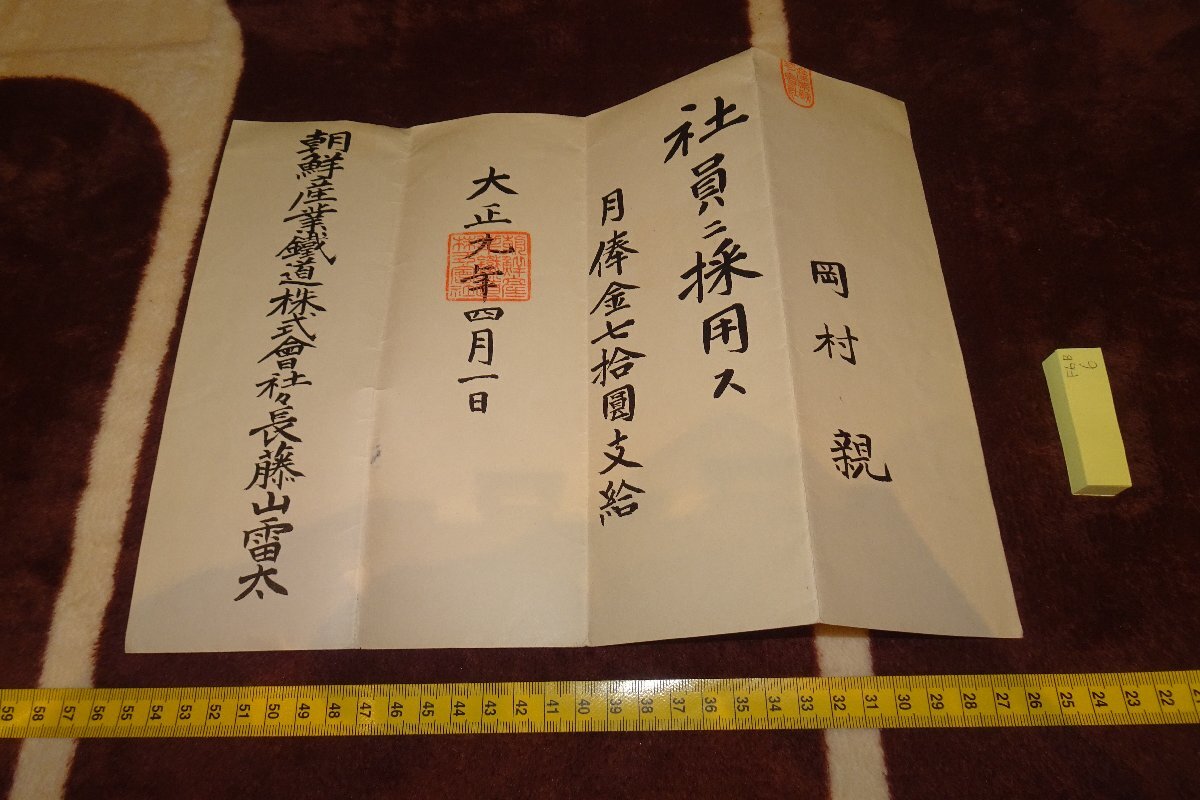 岡村親
社員ニ採用ス
月俸金七拾圓支給
大正九年四月一日
朝鮮産業鐵道株式會社々長藤山雷太
59 58 57 56 55 54 53 52 51 50 49 48 47 46 45 44 43 42 41 40 39 38 37 36 35 34 33 32 31 30 29 28 27 26 25 24 23 22